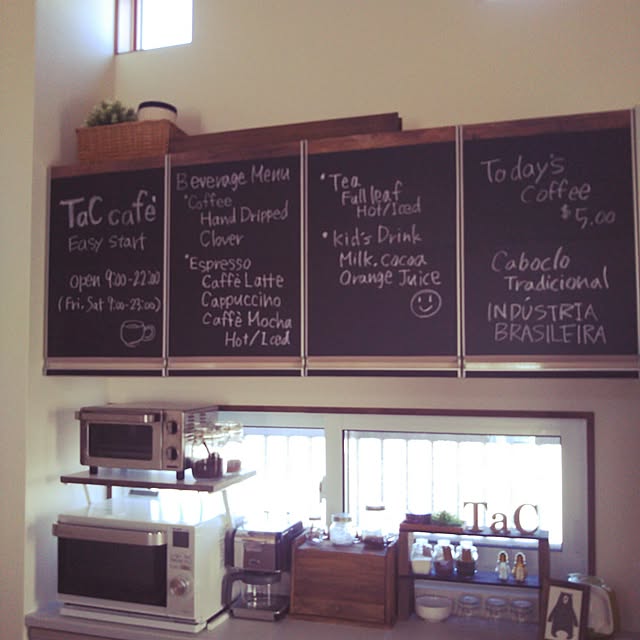 TaC cafe'
Easy start
open 9:00-22:00
(Fri. Sat 9:00-23:00)
Beverage Menu
•Coffee
Hand Dripped
Clover
•Espresso
Caffè Latte
Cappuccino
Caffè Mocha
Hot/Iced
•Tea
Full leaf
Hot/Iced
•Kid's Drink
Milk. cocoa
Orange Juice
Today's
Coffee
$5.00
Caboclo
Tradicional
INDÚSTRIA
BRASILEIRA
TaC